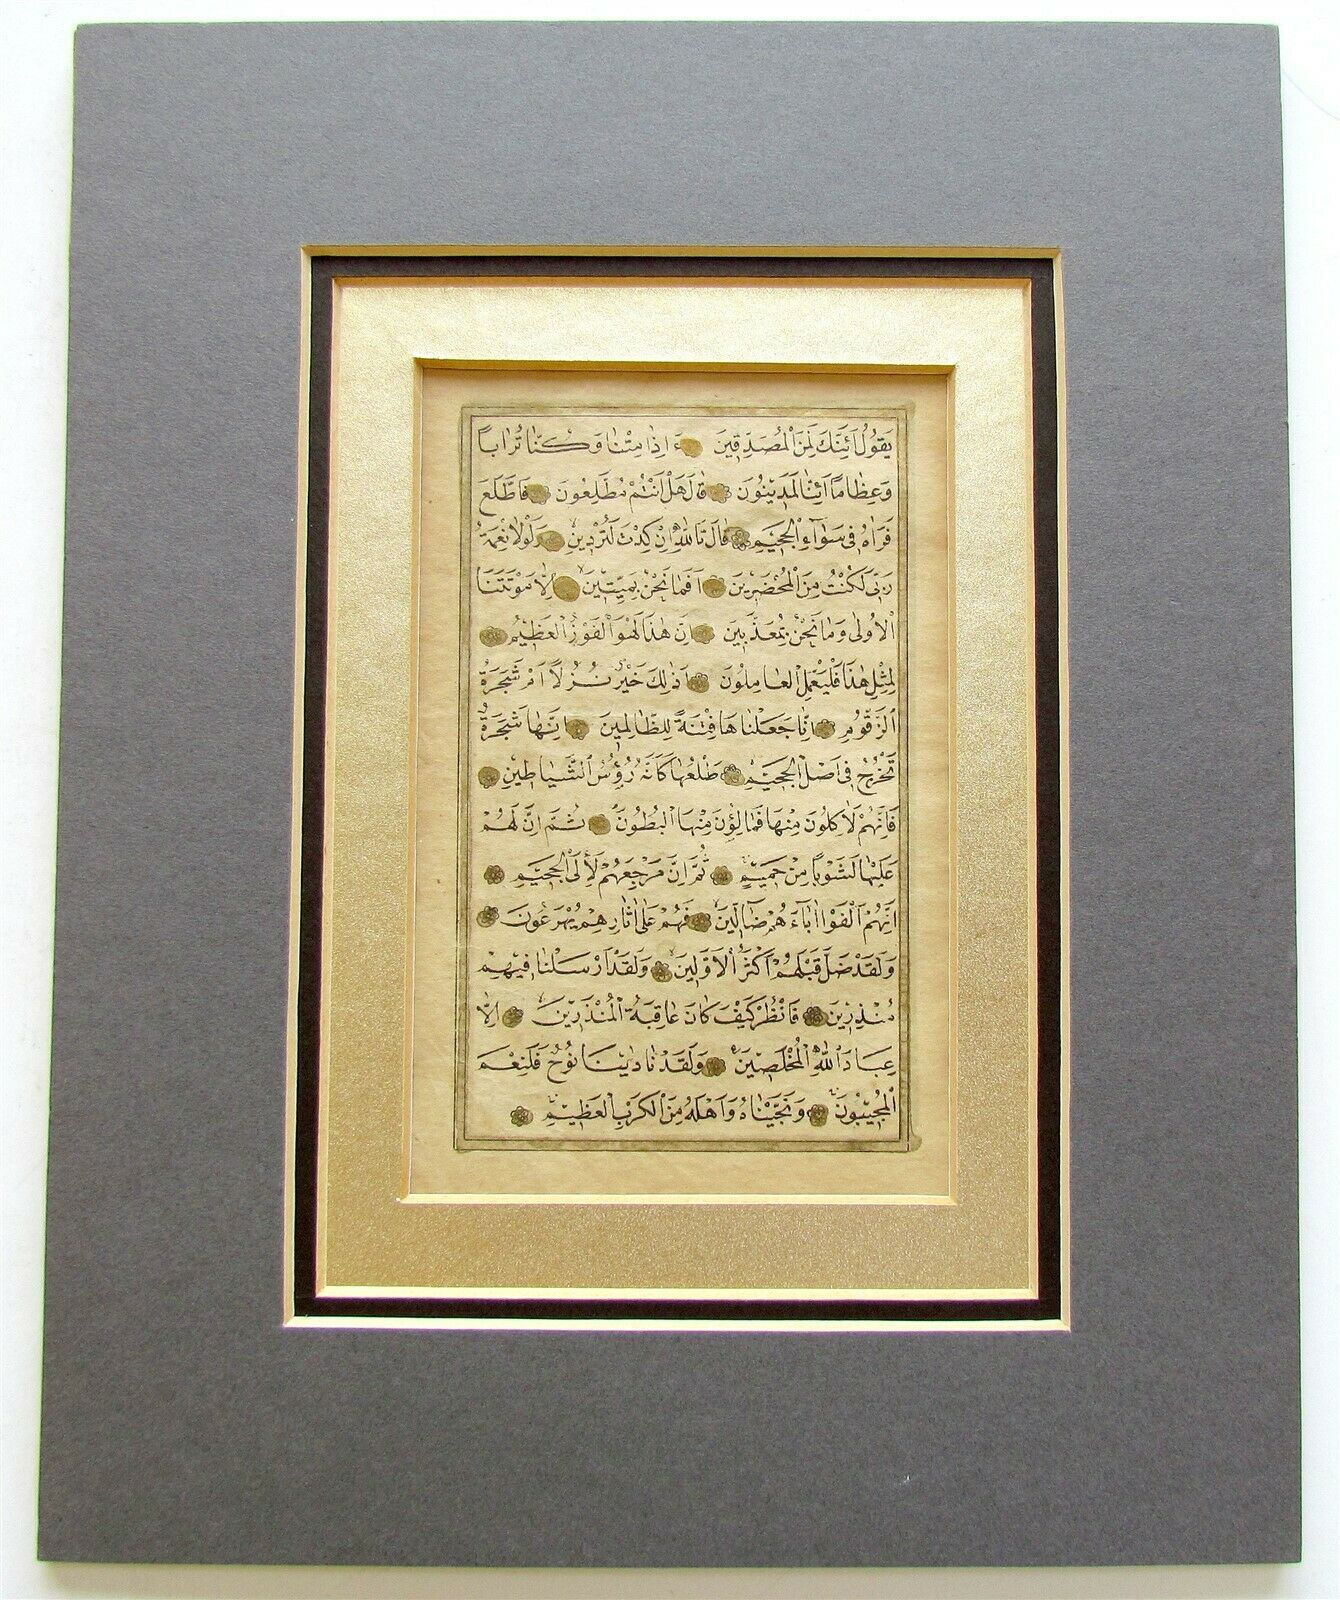 يَقُولُ اَئِنَّكَ لَمِنَ الْمُصَدِّقِينَ ءَ اِذَا مِتْنَا وَكُنَّا تُرَابًا
وَعِظَامًا اَئِنَّا لَمَدِينُونَ قَالَ هَلْ اَنْتُمْ مُطَّلِعُونَ فَاطَّلَعَ
فَرَاٰهُ فِى سَوَآءِ الْجَحِيمِ قَالَ تَاللّٰهِ اِنْ كِدْتَ لَتُرْدِينِ وَلَوْلَا نِعْمَةُ
رَبِّى لَكُنْتُ مِنَ الْمُحْضَرِينَ اَفَمَا نَحْنُ بِمَيِّتِينَ اِلَّا مَوْتَتَنَا
الْاُولٰى وَمَا نَحْنُ بِمُعَذَّبِينَ اِنَّ هٰذَا لَهُوَ الْفَوْزُ الْعَظِيمُ
لِمِثْلِ هٰذَا فَلْيَعْمَلِ الْعَامِلُونَ اَذٰلِكَ خَيْرٌ نُزُلًا اَمْ شَجَرَةُ
الزَّقُّومِ اِنَّا جَعَلْنَاهَا فِتْنَةً لِلظَّالِمِينَ اِنَّهَا شَجَرَةٌ
تَخْرُجُ فِى اَصْلِ الْجَحِيمِ طَلْعُهَا كَاَنَّهُ رُؤُسُ الشَّيَاطِينِ
فَاِنَّهُمْ لَاٰكِلُونَ مِنْهَا فَمَالِؤُنَ مِنْهَا الْبُطُونَ ثُمَّ اِنَّ لَهُمْ
عَلَيْهَا لَشَوْبًا مِنْ حَمِيمٍ ثُمَّ اِنَّ مَرْجِعَهُمْ لَاِلَى الْجَحِيمِ
اِنَّهُمْ اَلْفَوْا اٰبَآءَهُمْ ضَآلِّينَ فَهُمْ عَلٰى اٰثَارِهِمْ يُهْرَعُونَ
وَلَقَدْ ضَلَّ قَبْلَهُمْ اَكْثَرُ الْاَوَّلِينَ وَلَقَدْ اَرْسَلْنَا فِيهِمْ
مُنْذِرِينَ فَانْظُرْ كَيْفَ كَانَ عَاقِبَةُ الْمُنْذَرِينَ اِلَّا
عِبَادَ اللّٰهِ الْمُخْلَصِينَ وَلَقَدْ نَادٰينَا نُوحٌ فَلَنِعْمَ
الْمُجِيبُونَ وَنَجَّيْنَاهُ وَاَهْلَهُ مِنَ الْكَرْبِ الْعَظِيمِ